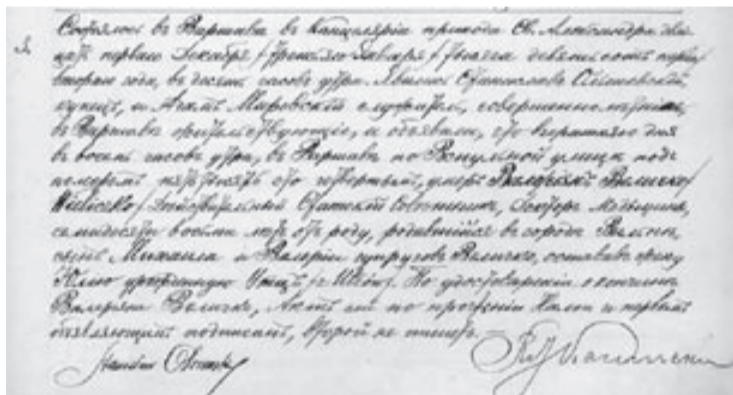 Состоялось въ Варшавѣ въ Канцеляріи прихода Св. Александра двад-
цать перваго Декабря /третьяго Января/ тысяча девятьсотъ перваго/
втораго года, въ десять часовъ утра. Явились Станиславъ
купецъ, и служитель, совершеннолѣтніе,
въ Варшавѣ жительствующіе, и объявили, что вчерашняго дня
въ восемь часовъ утра, въ Варшавѣ по улицѣ подъ
номеромъ сто четвертымъ, умеръ Валеріанъ Величко/
Wieliczko/ Дѣйствительный Статскій Совѣтникъ, Докторъ Медицины,
семидесяти восьми лѣтъ отъ роду, родившійся въ городѣ Вильнѣ,
сынъ Михаила и Валеріи супруговъ Величко, оставивъ жену
Юлію урожденную По удостовѣреніи о кончинѣ
Валеріана Величко, Актъ сей по прочтеніи Нами и первымъ
объявляющимъ подписанъ, второй не пишетъ.